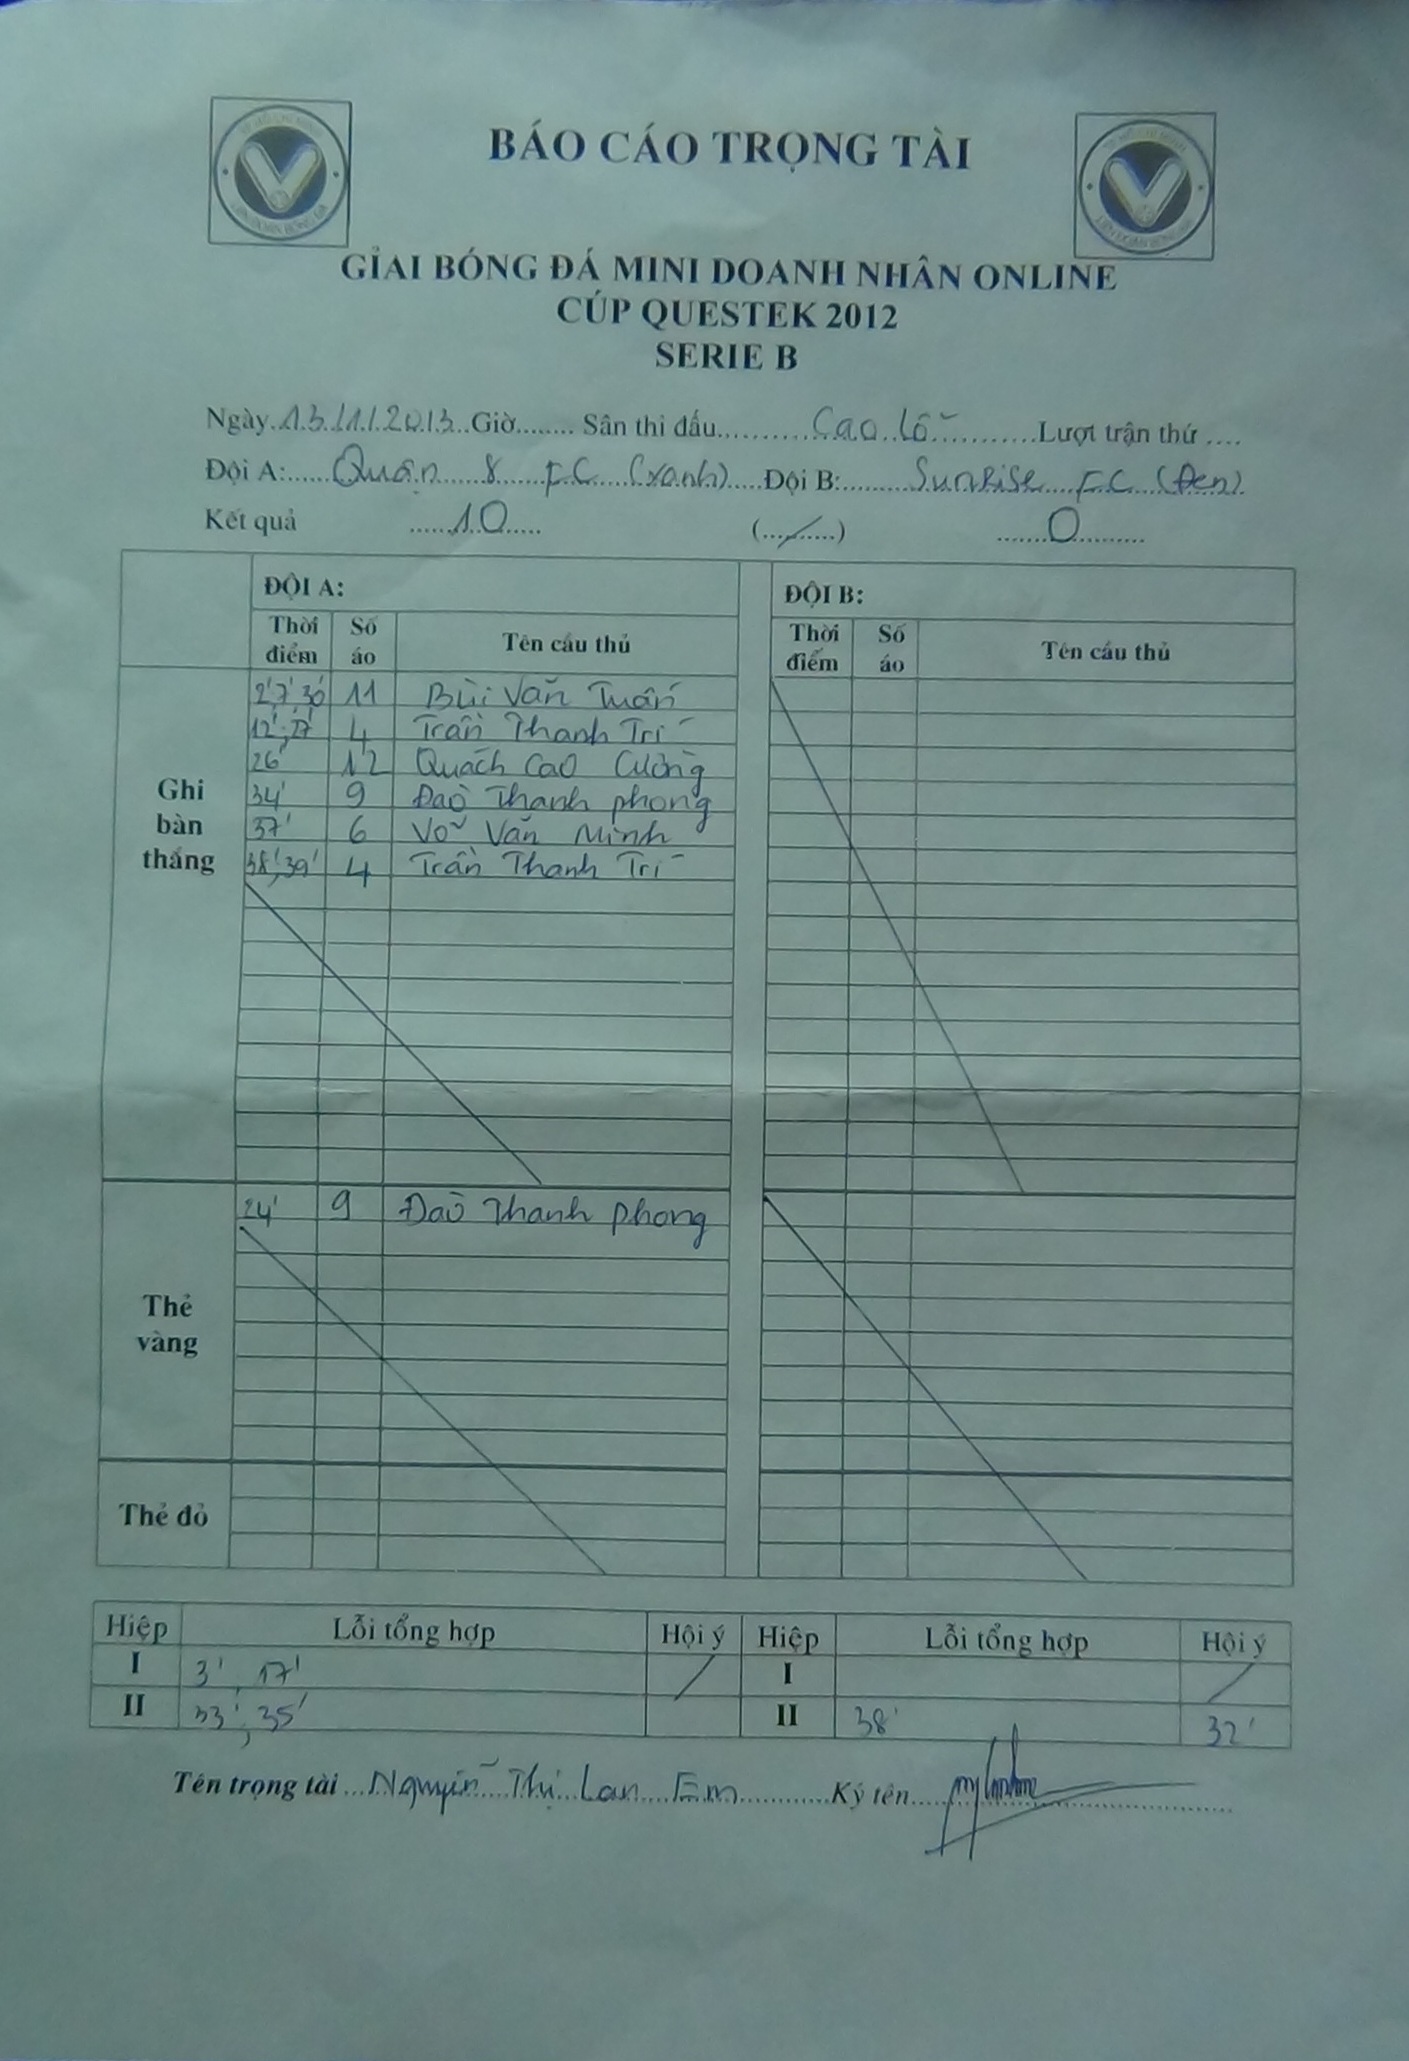 BÁO CÁO TRỌNG TÀI
GIẢI BÓNG ĐÁ MINI DOANH NHÂN ONLINE
CÚP QUESTEK 2012
SERIE B
Ngày 13/11/2013 Giờ........ Sân thi đấu Cao Lỗ Lượt trận thứ ....
Đội A: Quận 8 FC (xanh) Đội B: Sunrise FC (Đen)
Kết quả 10 (...../.....) 0
ĐỘI A: ĐỘI B:
Thời điểm Số áo Tên cầu thủ Thời điểm Số áo Tên cầu thủ
Ghi bàn thắng
2' 7' 30' 11 Bùi Văn Tuấn
12'; 27' 4 Trần Thanh Trí
26' 12 Quách Cao Cường
34' 9 Đào Thanh phong
37' 6 Võ Văn Minh
38', 39' 4 Trần Thanh Trí
Thẻ vàng
24' 9 Đào Thanh phong
Thẻ đỏ
Hiệp Lỗi tổng hợp Hội ý Hiệp Lỗi tổng hợp Hội ý
I 3', 17' / I /
II 33', 35' II 38' 32'
Tên trọng tài Nguyễn Thị Lan Em Ký tên